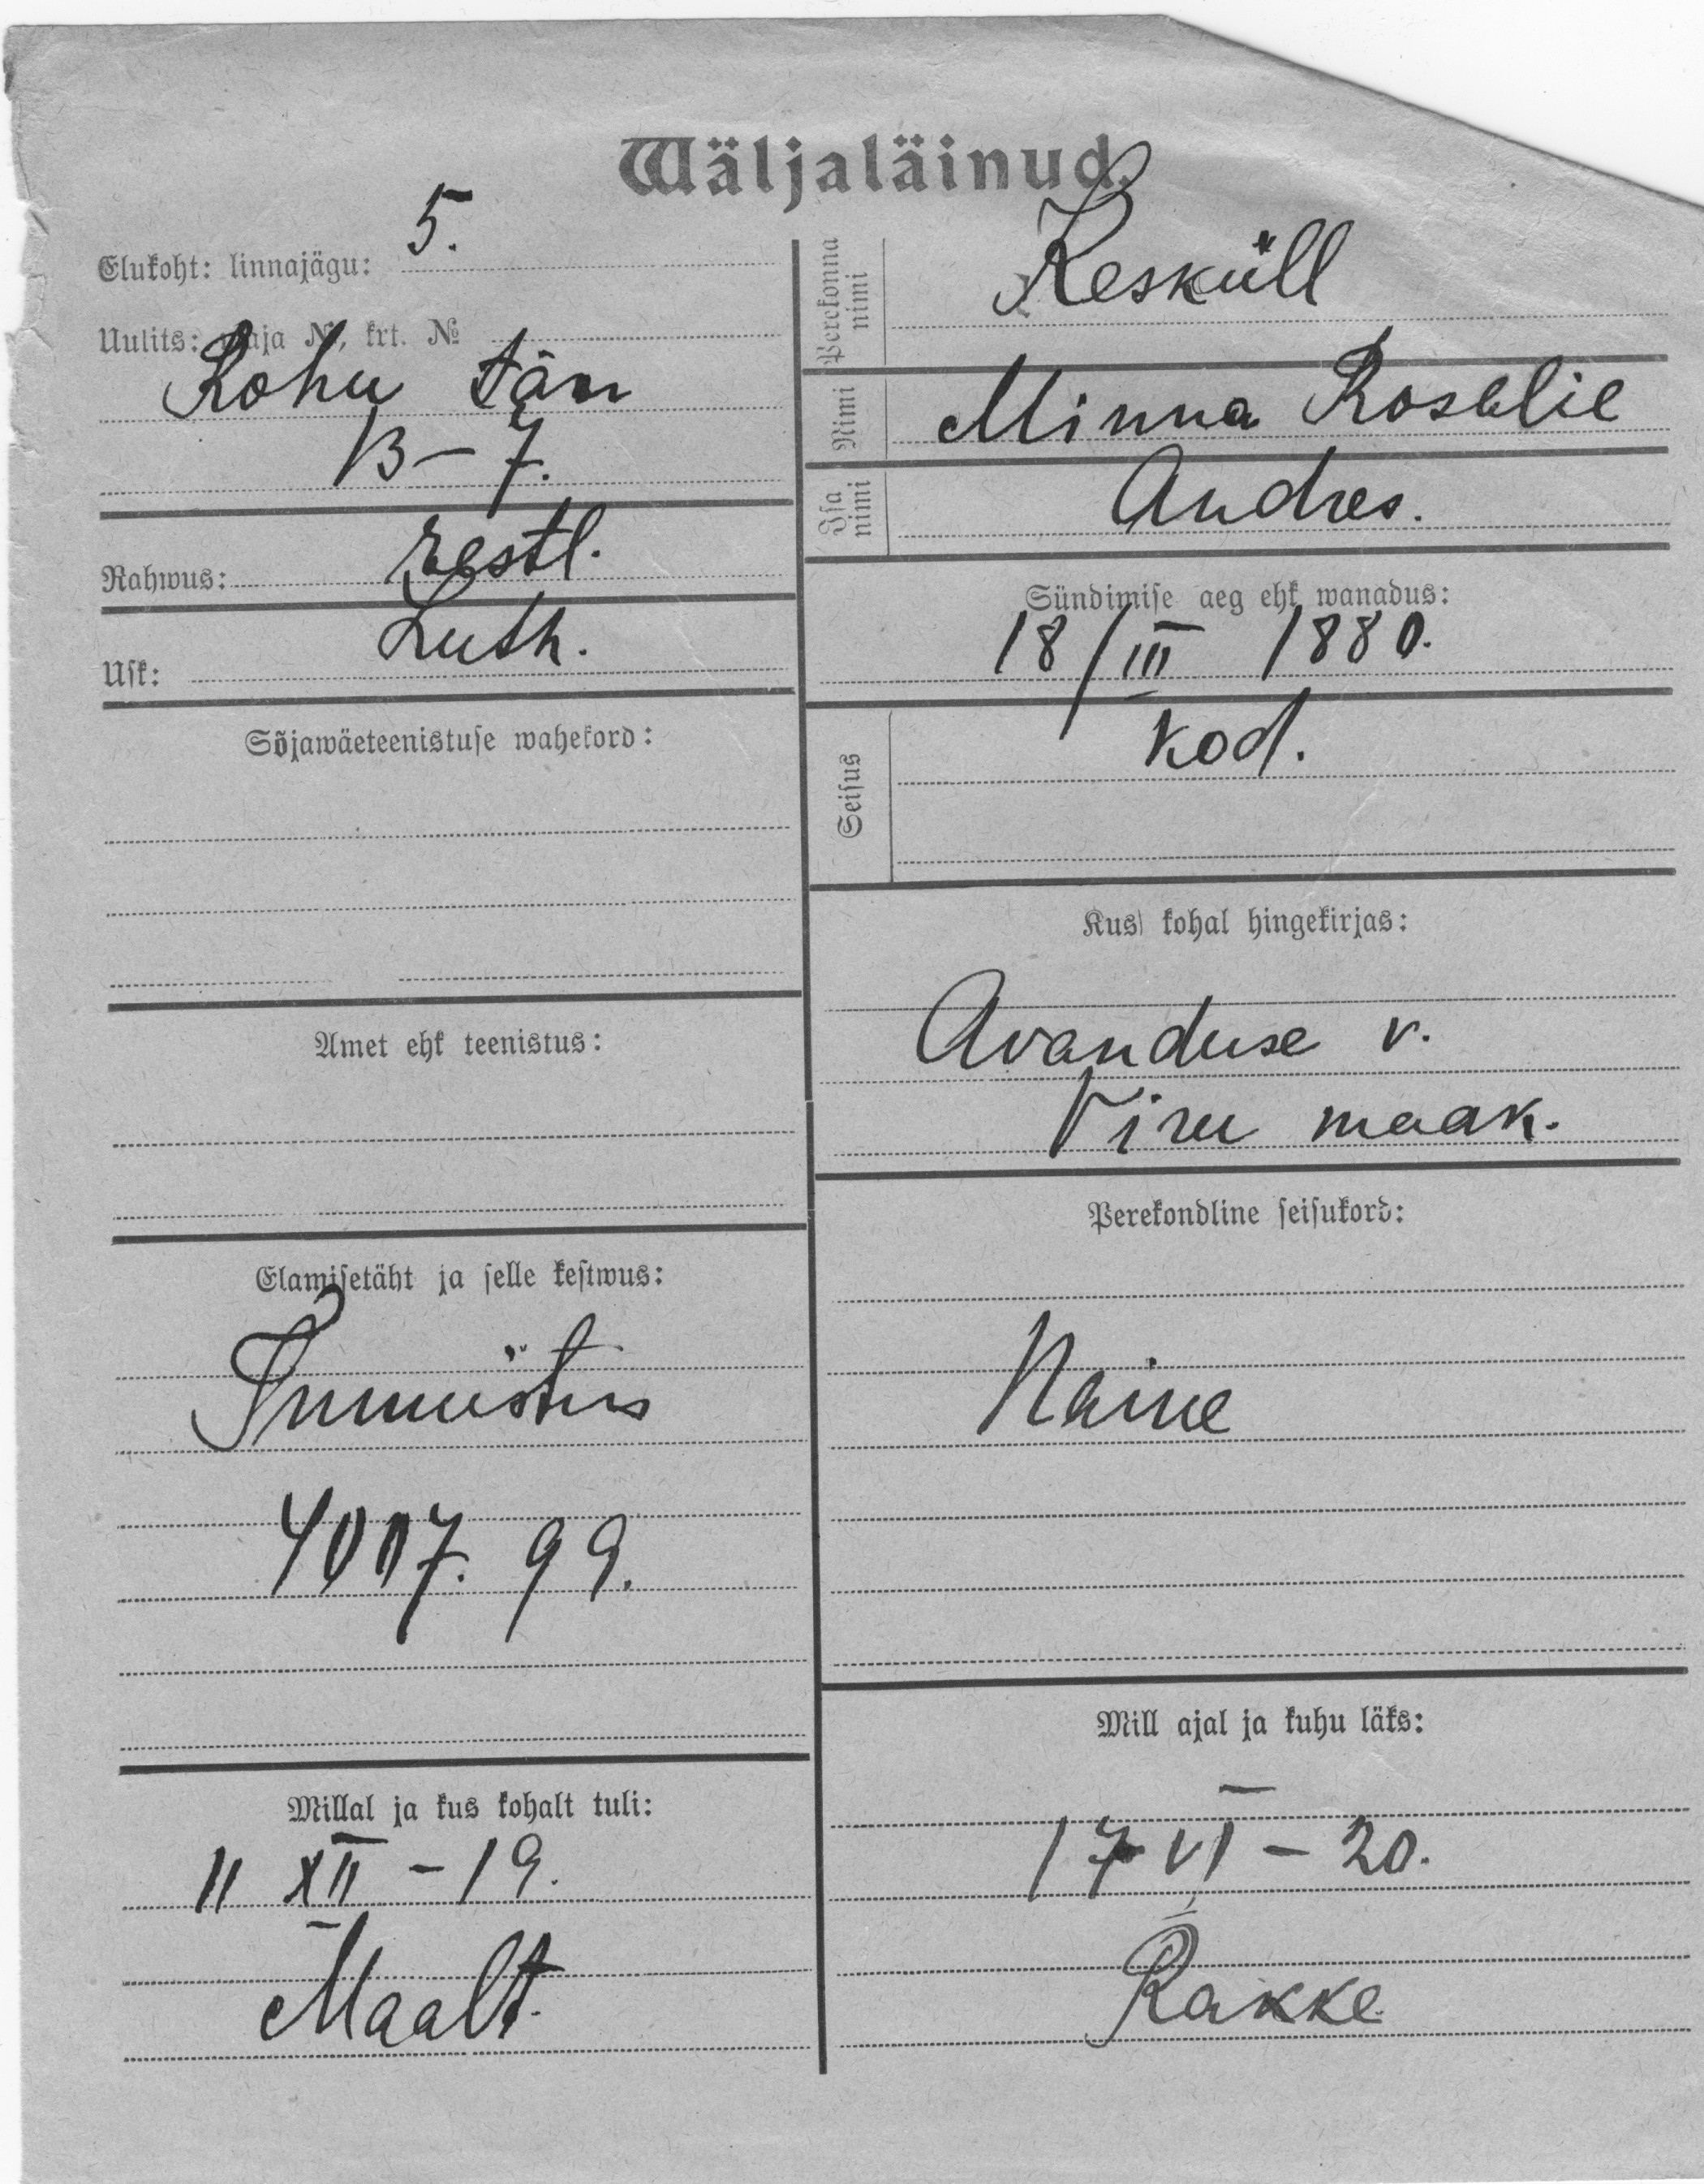 Wäljaläinud.
Elukoht: linnajägu: 5.
Uulits: maja №, krt. №
Rohu tän
13 – 7.
Rahwus: eestl.
Usk: Luth.
Sõjawäeteenistuse wahekord:
Amet ehk teenistus:
Elamisetäht ja selle kestwus:
99.
Millal ja kus kohalt tuli:
11 XII – 19.
Maalt.
Perekonna nimi Kesküll
Nimi Minna Rosalie
Isa nimi Andres.
Sündimise aeg ehk wanadus:
18/III 1880.
Seisus kod.
Kus kohal hingekirjas:
Avanduse v.
Viru maak.
Perekondline seisukord:
Naine
Mill ajal ja kuhu läks:
17 VI – 20.
Rakke